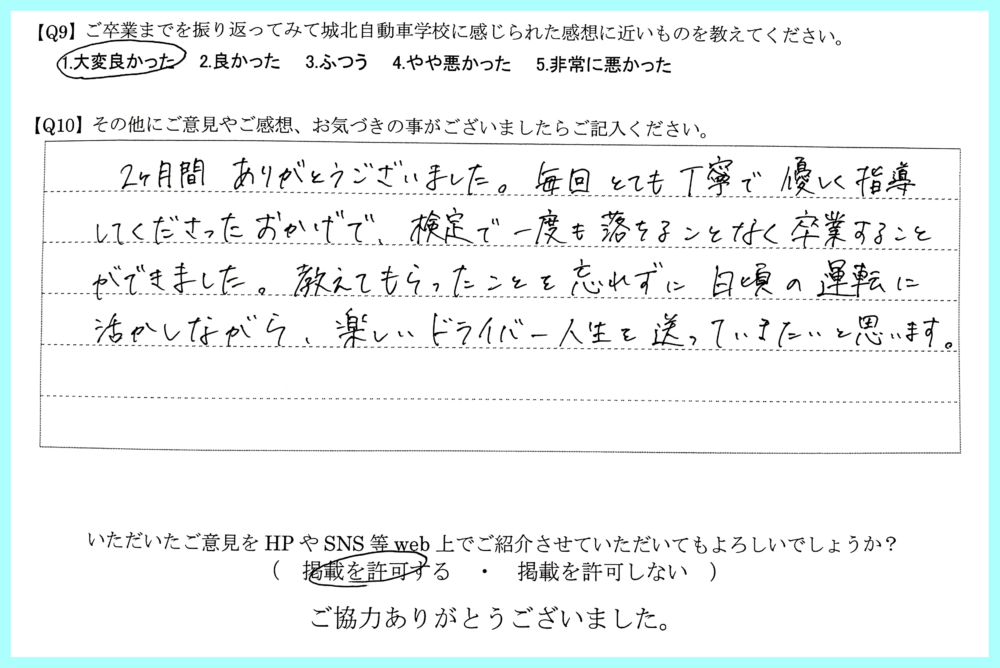 【Q9】ご卒業までを振り返ってみて城北自動車学校に感じられた感想に近いものを教えてください。
1.大変良かった　2.良かった　3.ふつう　4.やや悪かった　5.非常に悪かった
【Q10】その他にご意見やご感想、お気づきの事がございましたらご記入ください。
2ヶ月間 ありがとうございました。毎回 とても 丁寧で 優しく指導
してくださったおかげで、検定で一度も落ちることなく卒業すること
ができました。教えてもらったことを忘れずに 日頃の運転に
活かしながら、楽しいドライバー人生を送っていきたいと思います。
いただいたご意見を HP や SNS 等 web 上でご紹介させていただいてもよろしいでしょうか？
（　掲載を許可する　・　掲載を許可しない　）
ご協力ありがとうございました。